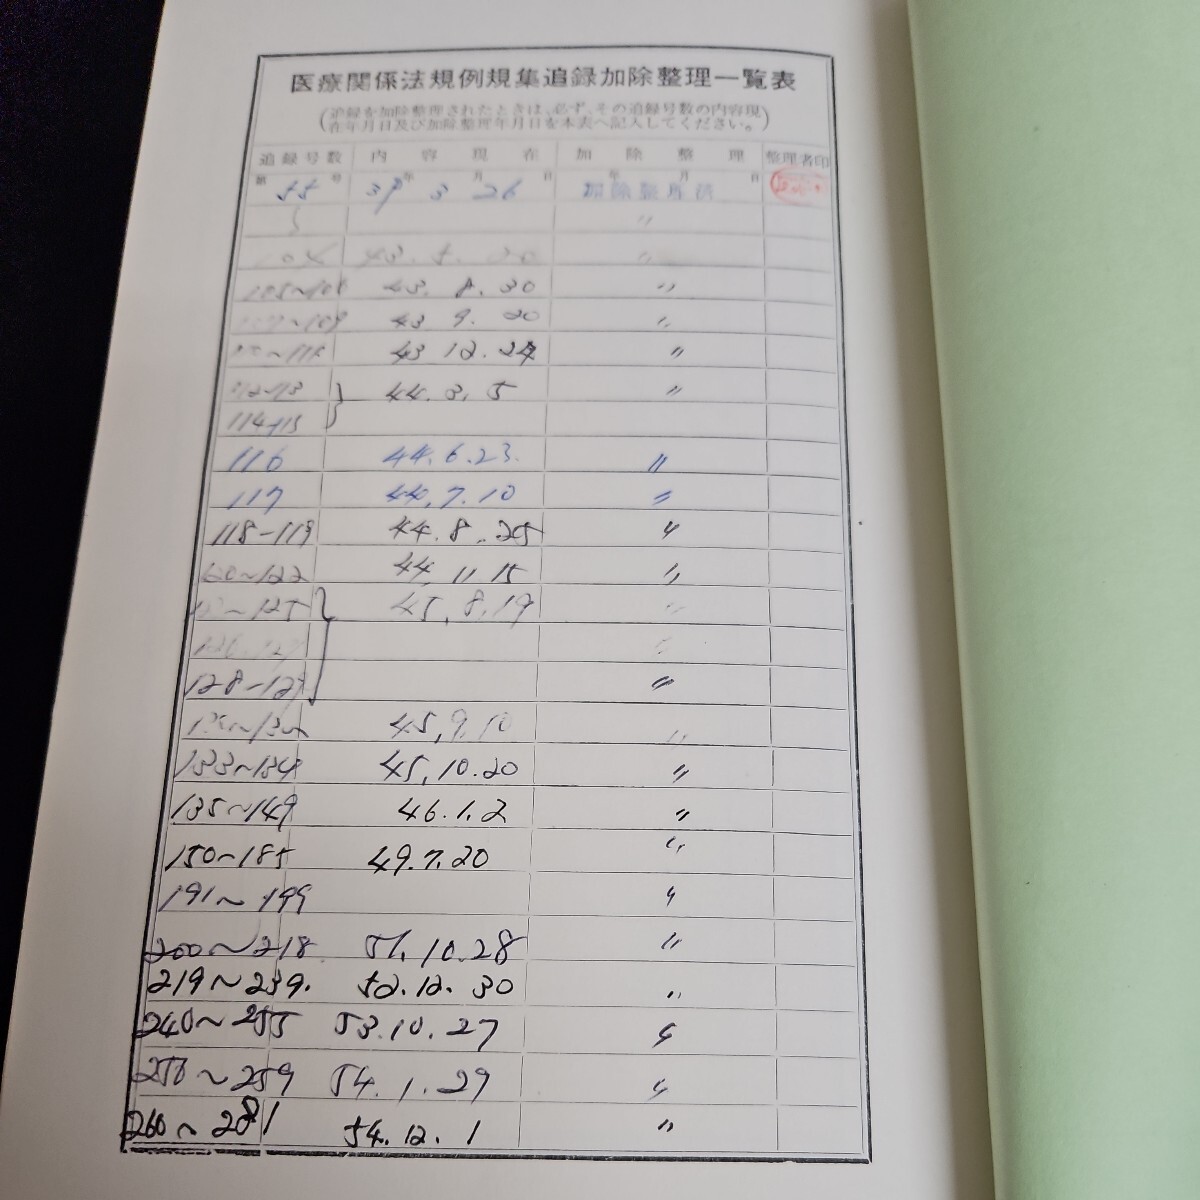 医療関係法規例規集追録加除整理一覧表
(追録を加除整理されたときは、必ず、その追録号数の内容現
在年月日及び加除整理年月日を本表へ記入してください。)
追録号数 内容現在 加除整理 整理者印
第 55 号 39 年 3 月 26 日 加除整理済 年 月 日
〃
43. 5. 〃
105~106 43. 8. 30 〃
~109 43 9. 20 〃
43 12. 24 〃
112-13 } 44. 3. 5 〃
114-115
116 44. 6. 23. 〃
117 44. 7. 10 〃
118-119 44. 8. 25 〃
~122 44. 11 15 〃
~125 45. 8. 19 〃
〃
128-129 〃
45. 9. 10 〃
133~134 45. 10. 20 〃
135~149 46. 1. 2 〃
150~185 49. 7. 20 〃
191~199 〃
200~218 51. 10. 28 〃
219~239. 52. 12. 30 〃
240~255 53. 10. 27 〃
256~259 54. 1. 29 〃
260~281 54. 12. 1 〃